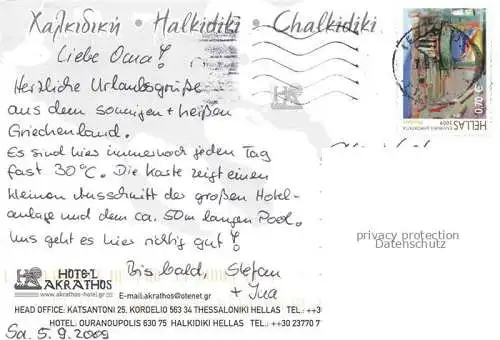 Χαλκιδική • Halkidiki • Chalkidiki
Liebe Oma!
Herzliche Urlaubsgrüße
aus dem sonnigen + heißen
Griechenland.
Es sind hier immernoch jeden Tag
fast 30°C. Die Karte zeigt einen
kleinen Ausschnitt der großen Hotel-
anlage und dem ca. 50m langen Pool.
Uns geht es hier richtig gut!
Bis bald, Stefan
+ Ina
HOTEL
AKRATHOS
www.akrathos-hotel.gr
E-mail.akrathos@otenet.gr
HEAD OFFICE: KATSANTONI 25, KORDELIO 563 34 THESSALONIKI HELLAS TEL.: ++3
HOTEL: OURANOUPOLIS 630 75 HALKIDIKI HELLAS TEL.: ++30 23770 7
Sa. 5.9.2009
0,70 €
HELLAS
2009
privacy protection
Datenschutz